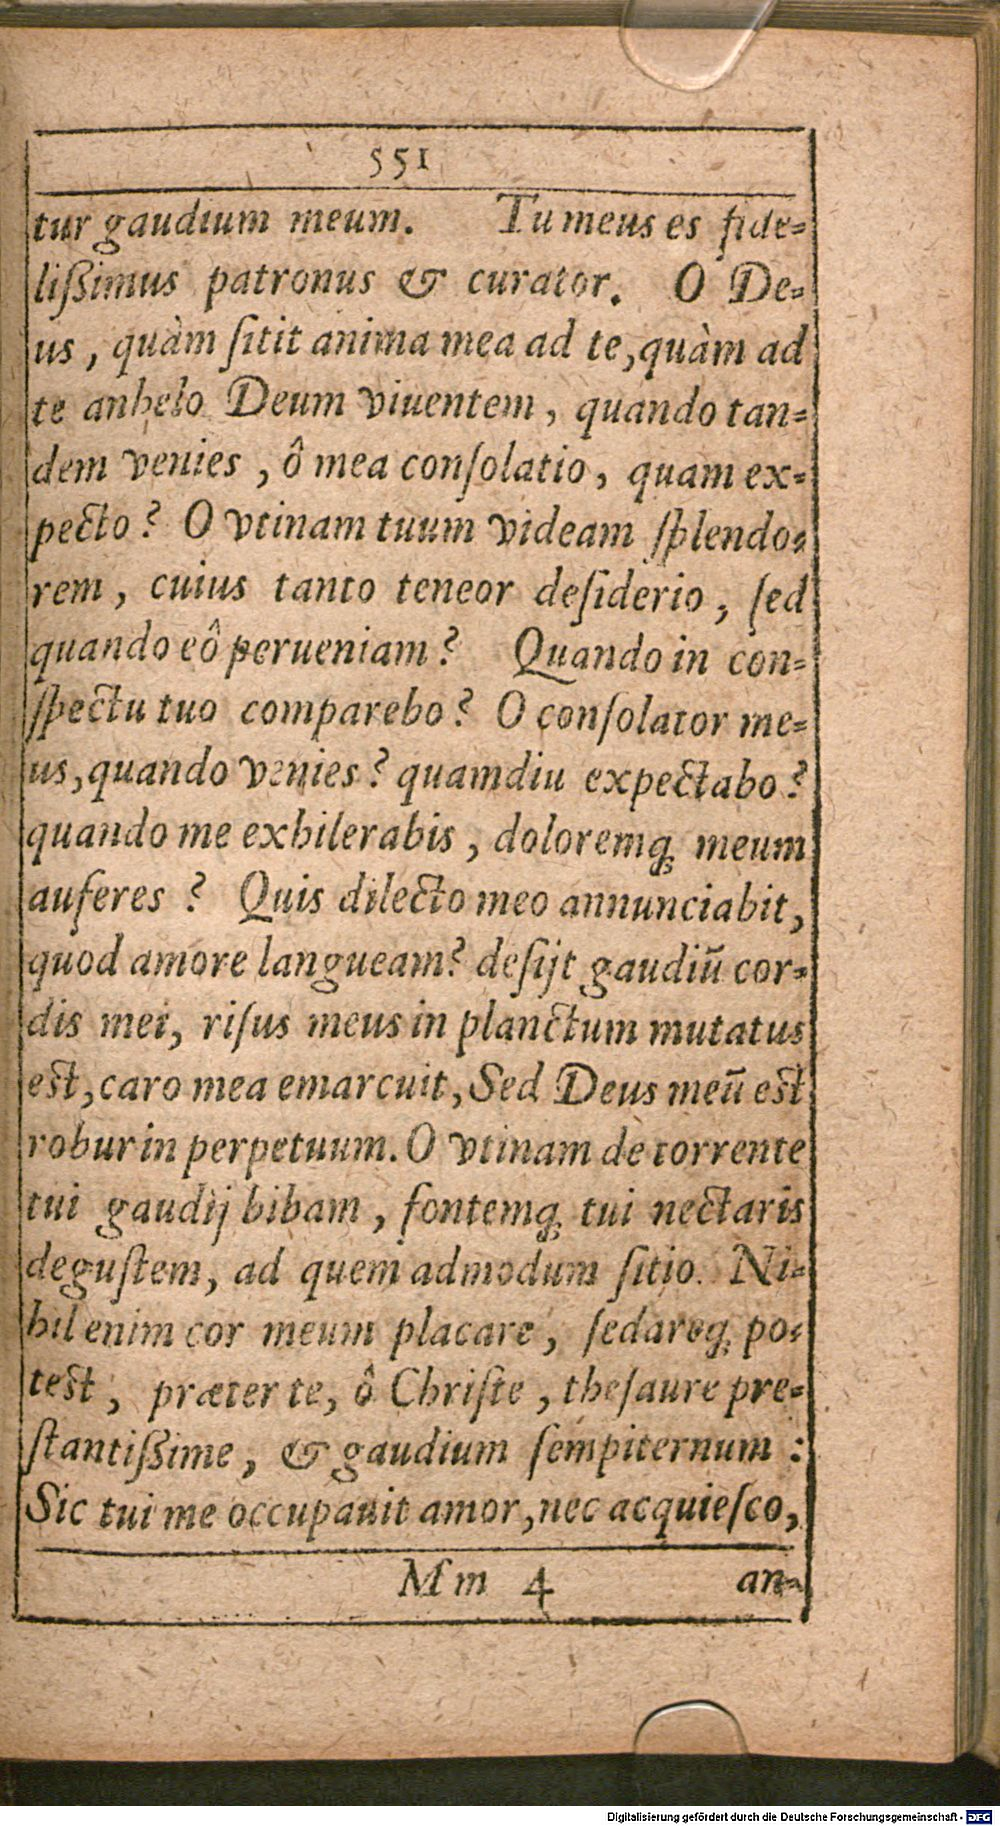 551
tur gaudium meum. Tu meus es fide-
lißimus patronus & curator. O De-
us, quàm ſitit anima mea ad te, quàm ad
te anhelo Deum viuentem, quando tan-
dem venies, ô mea conſolatio, quam ex-
pecto? O vtinam tuum videam ſplendo-
rem, cuius tanto teneor deſiderio, ſed
quando eô perueniam? Quando in con-
ſpectu tuo comparebo? O conſolator me-
us, quando venies? quamdiu expectabo?
quando me exhilerabis, doloremq; meum
auferes? Quis dilecto meo annunciabit,
quod amore langueam? deſijt gaudiū cor-
dis mei, riſus meus in planctum mutatus
est, caro mea emarcuit, Sed Deus meū est
robur in perpetuum. O vtinam de torrente
tui gaudij bibam, fontemq; tui nectaris
deguſtem, ad quem admodum ſitio. Ni-
hil enim cor meum placare, ſedareq; po-
test, præter te, ô Chriſte, theſaure pre-
ſtantißime, & gaudium ſempiternum:
Sic tui me occupauit amor, nec acquieſco,
Mm 4 an-
Digitalisierung gefördert durch die Deutsche Forschungsgemeinschaft - DFG